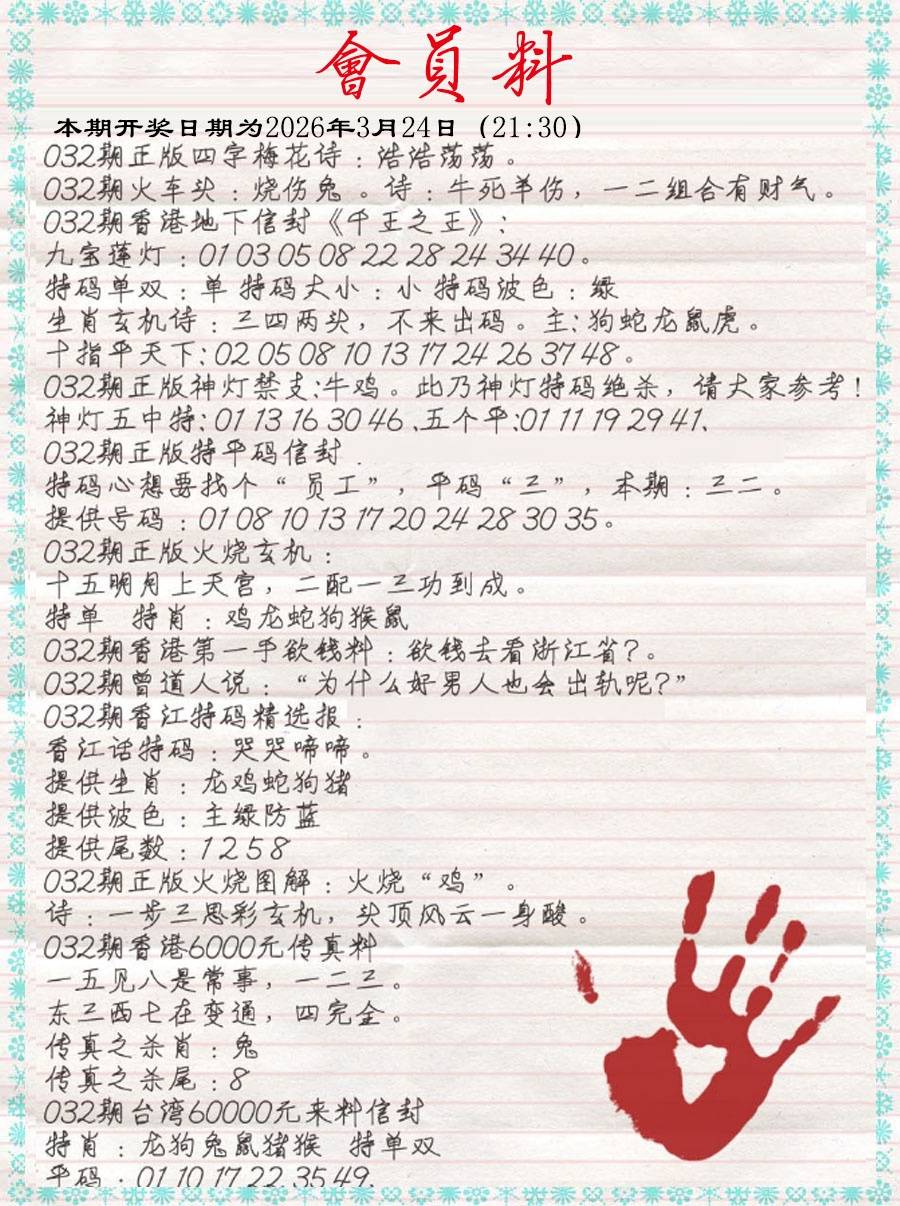 會員料
本期开奖日期为2026年3月24日（21:30）
032期正版四字梅花诗：浩浩荡荡。
032期火车头：烧伤兔 。诗：牛死羊伤，一二组合有财气。
032期香港地下信封《千王之王》:
九宝莲灯：01 03 05 08 22 28 24 34 40。
特码单双：单 特码大小：小 特码波色：绿
生肖玄机诗：三四两头，不来出码。主: 狗蛇龙鼠虎。
十指平天下: 02 05 08 10 13 17 24 26 37 48。
032期正版神灯禁支:牛鸡。此乃神灯特码绝杀，请大家参考！
神灯五中特: 01 13 16 30 46 、五个平:01 11 19 29 41、
032期正版特平码信封 .
特码心想要找个“员工”，平码“三”，本期：三二。
提供号码：01 08 10 13 17 20 24 28 30 35。
032期正版火烧玄机：
十五明月上天宫，二配一三功到成。
特单 特肖：鸡龙蛇狗猴鼠
032期香港第一手欲钱料：欲钱去看浙江省?。
032期曾道人说：“为什么好男人也会出轨呢?”
032期香江特码精选报：
香江话特码：哭哭啼啼。
提供生肖：龙鸡蛇狗猪
提供波色：主绿防蓝
提供尾数：1 2 5 8
032期正版火烧图解：火烧“鸡”。
诗：一步三思彩玄机，头顶风云一身酸。
032期香港6000元传真料
一五见八是常事，一二三。
东三西七在变通，四完金。
传真之杀肖：兔
传真之杀尾：8
032期台湾60000元来料信封
特肖：龙狗兔鼠猪猴 特单双
平码：01 10 17 22 35 49、